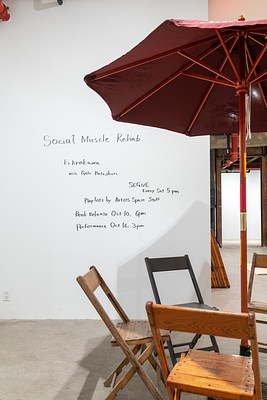 Social Muscle Rehab
Ei Arakawa
with Gela Patashuri
SEGUE
Every Sat 5 pm
Playlists by Artists Space Staff
Book Release Oct 10, 6pm
Performance Oct 16, 3pm